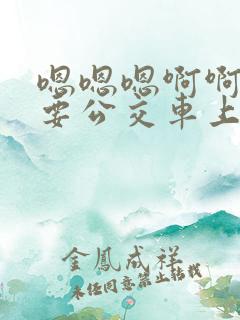 嗯嗯嗯啊啊
要公交車上
金鳳成祥
未经同意禁止转载